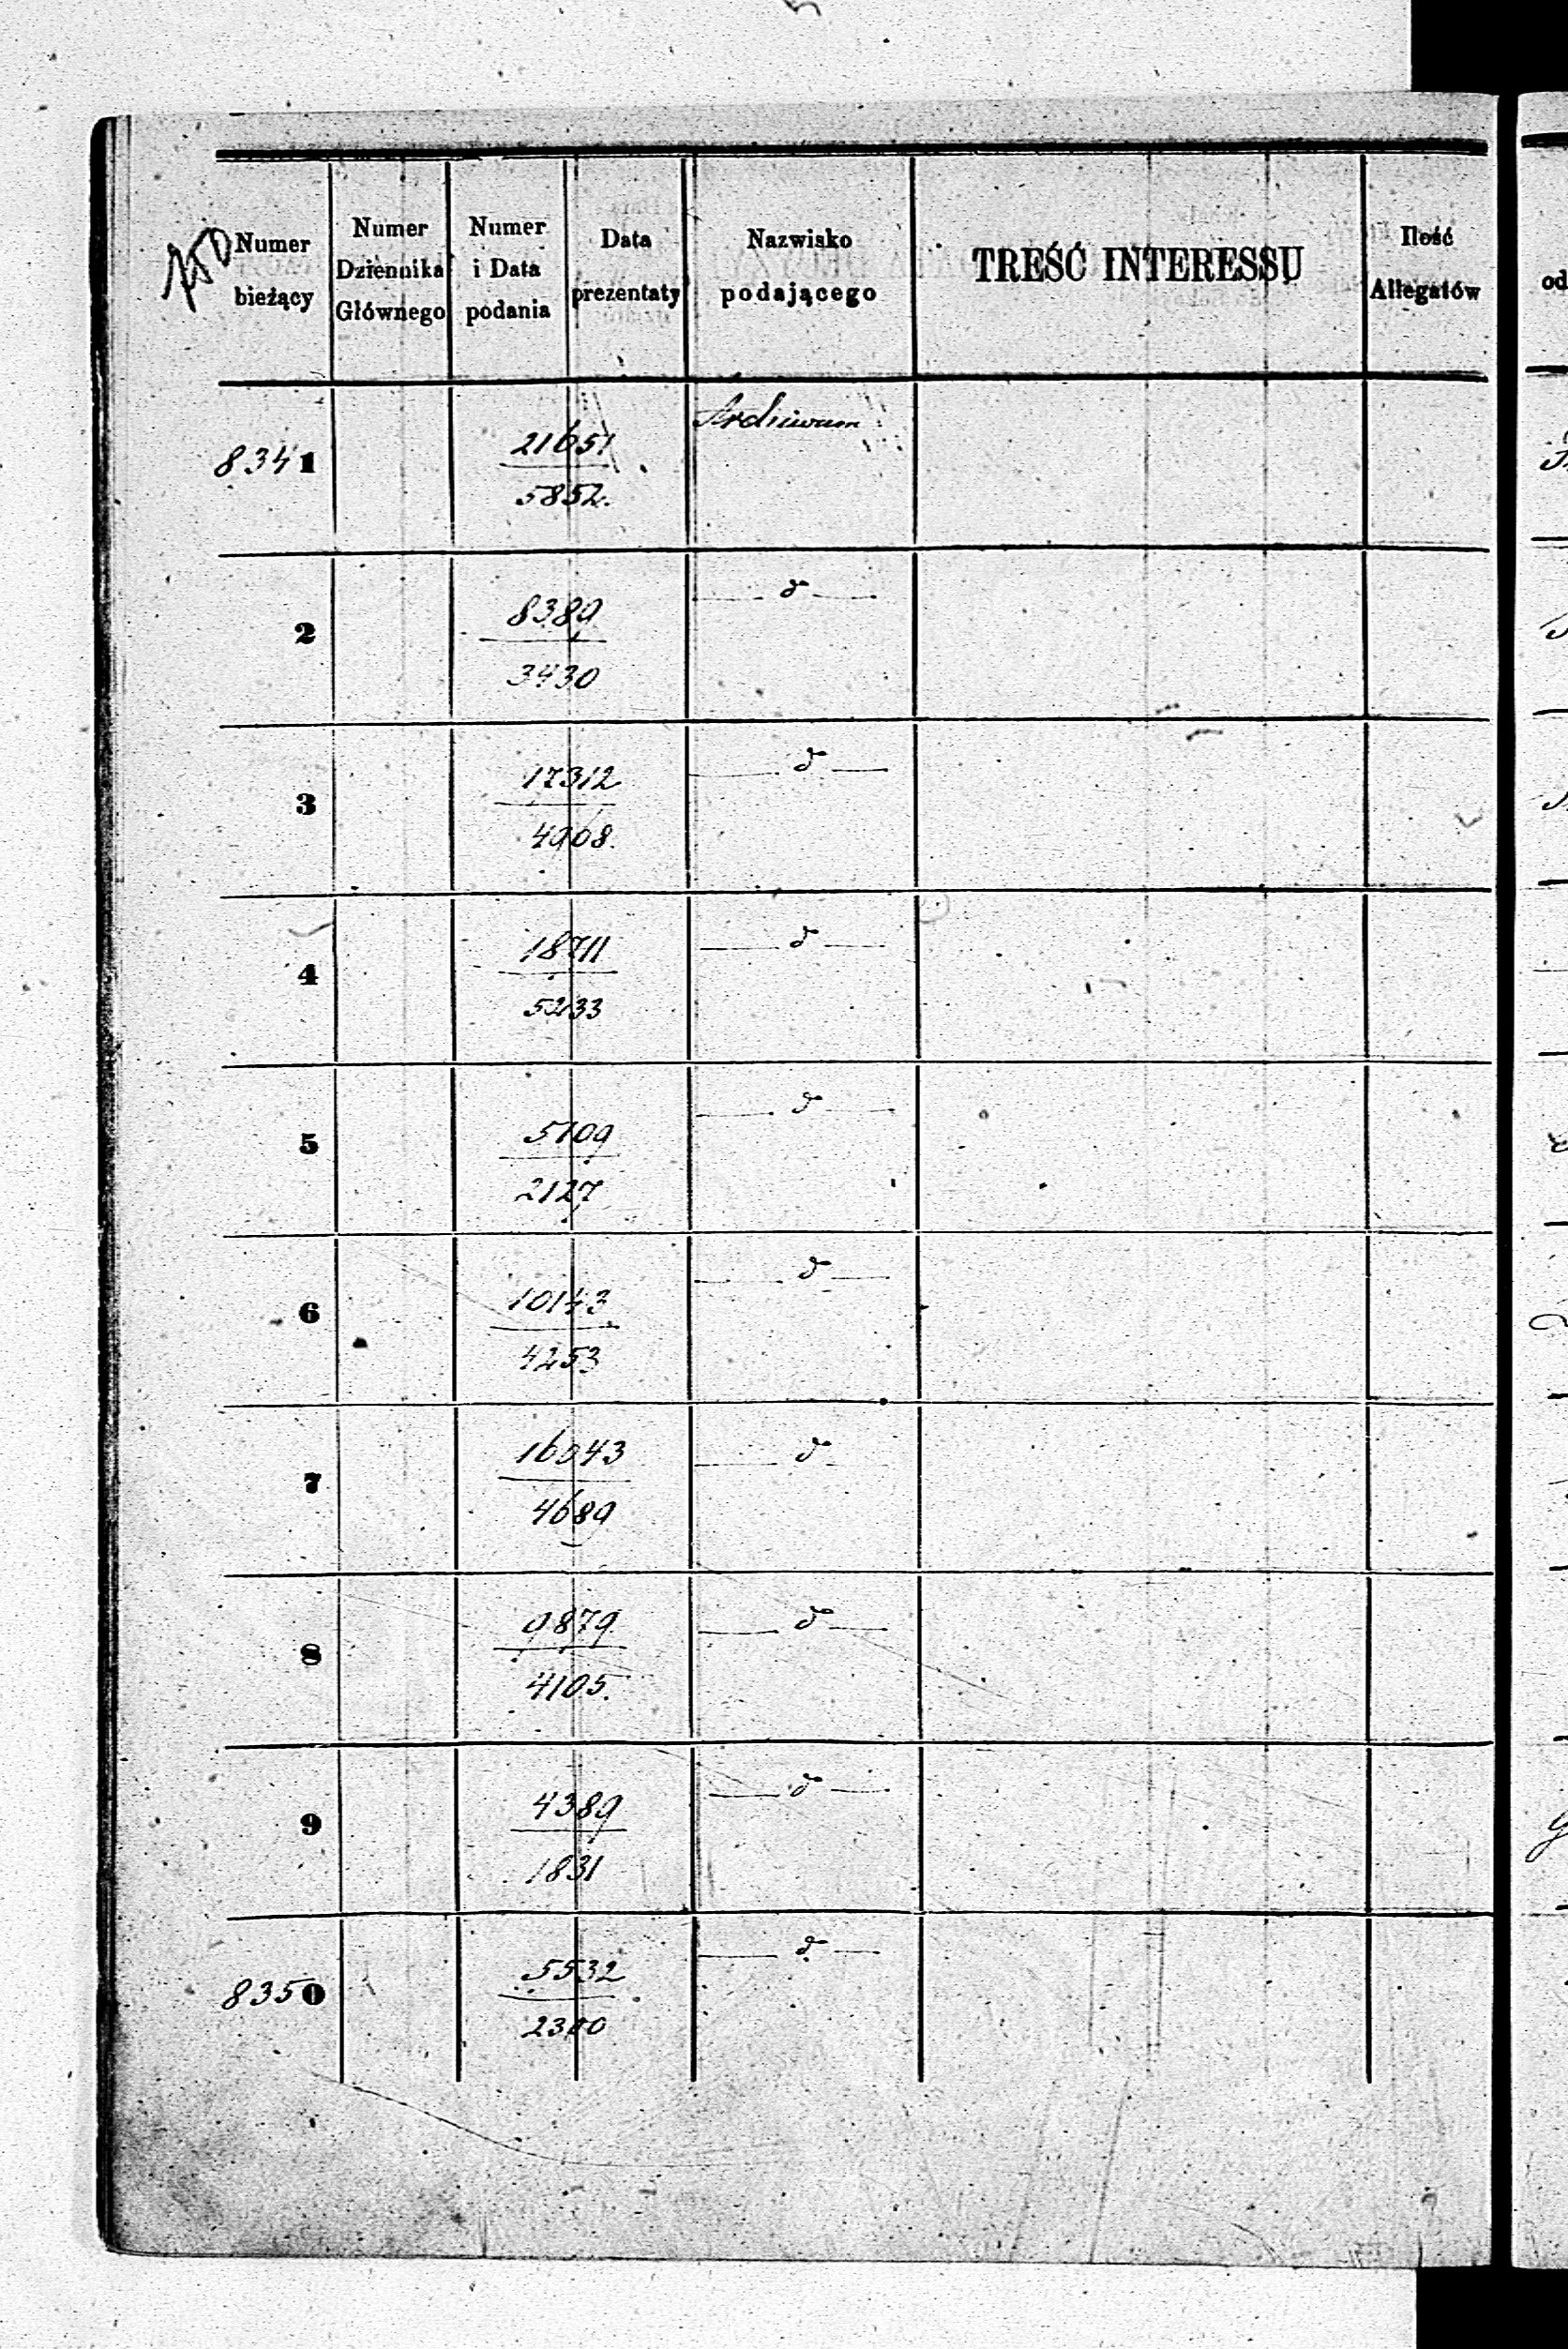 Numer bieżący
Numer Dziennika Głównego
Numer i Data podania
Data prezentaty
Nazwisko podającego
TREŚĆ INTERESSU
Ilość Allegatów
8341
21651
5852.
Archiwum
2
8389
3430
d
3
17312
4908.
d
4
18711
5233
d
5
5109
2127
d
6
10143
4253
d
7
4689
d
8
9879
4105.
d
9
4389
1831
d
8350
5532
2300
d